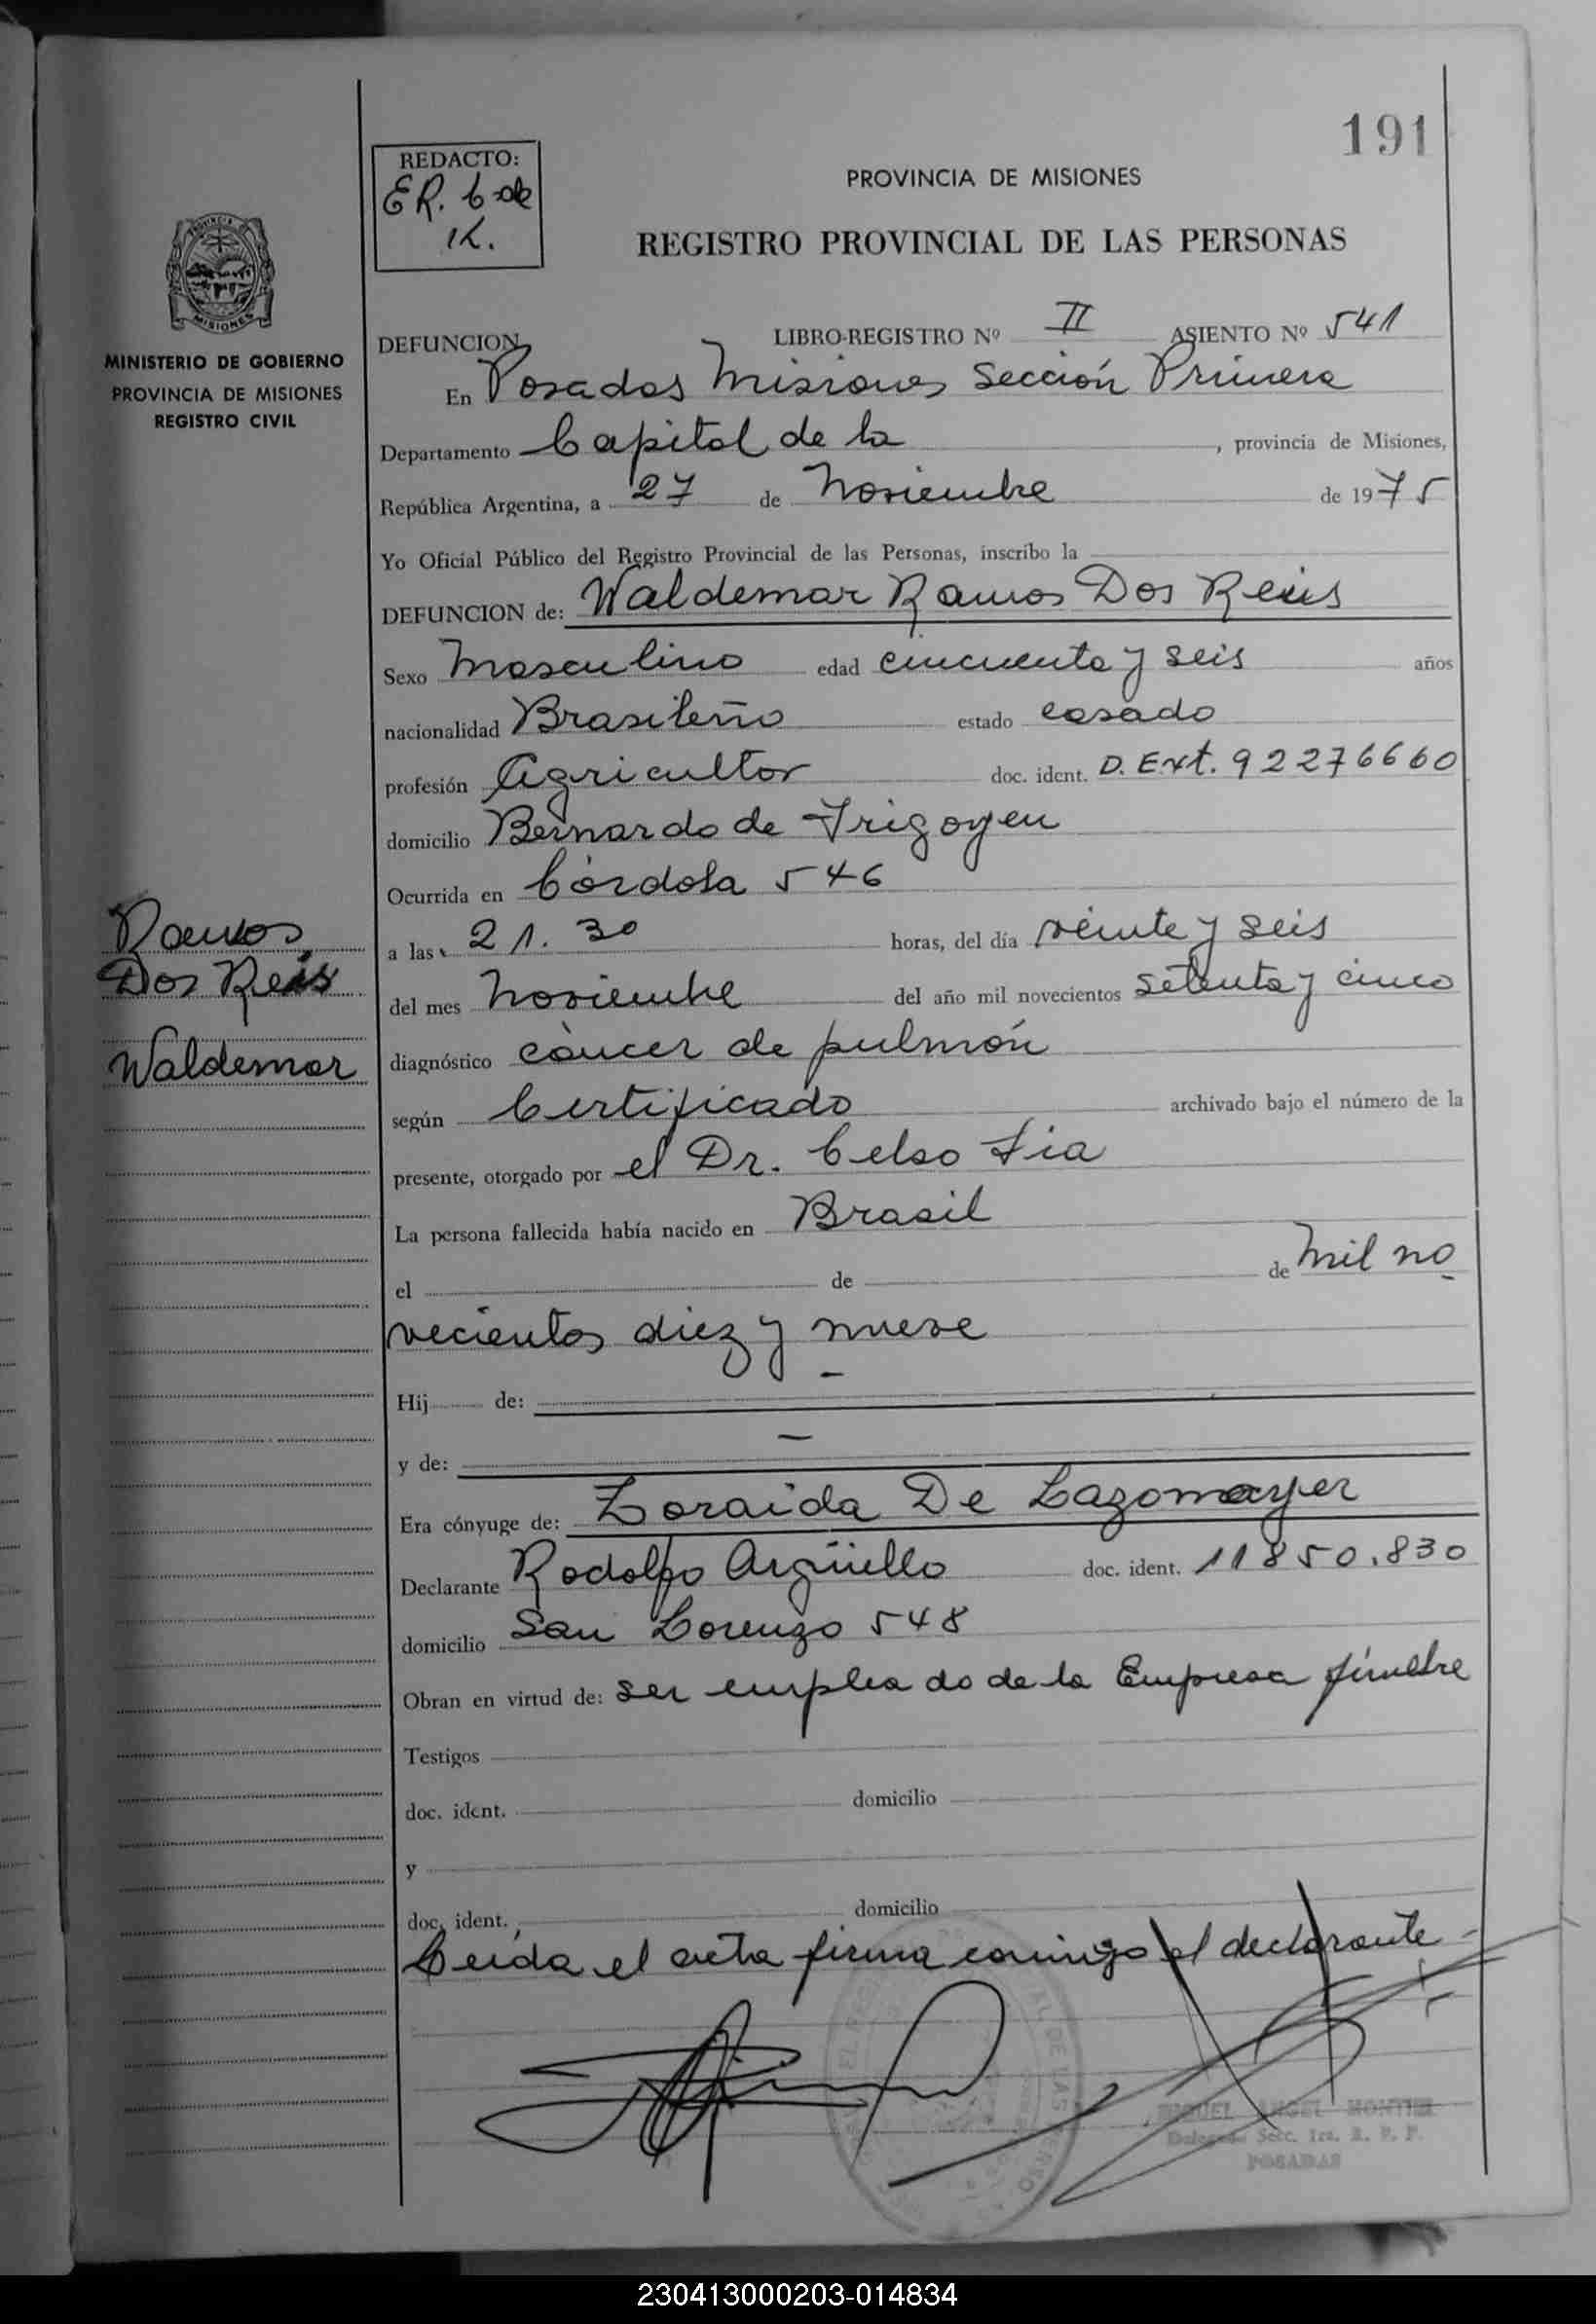 191
REDACTO:
ER. 6 de
K.
PROVINCIA DE MISIONES
REGISTRO PROVINCIAL DE LAS PERSONAS
PROVINCIA
MISIONES
MINISTERIO DE GOBIERNO
PROVINCIA DE MISIONES
REGISTRO CIVIL
DEFUNCION LIBRO-REGISTRO Nº II ASIENTO Nº 541
En Posadas Misiones Sección Primera
Departamento Capital de la , provincia de Misiones,
República Argentina, a 27 de Noviembre de 1975
Yo Oficial Público del Registro Provincial de las Personas, inscribo la
DEFUNCION de: Waldemar Ramos Dos Reis
Sexo Masculino edad cincuenta y seis años
nacionalidad Brasileño estado casado
profesión Agricultor doc. ident. D. Ext. 92276660
domicilio Bernardo de Irigoyen
Ocurrida en Córdoba 546
a las 21.30 horas, del día veinte y seis
del mes Noviembre del año mil novecientos setenta y cinco
diagnóstico cáncer de pulmón
según Certificado archivado bajo el número de la
presente, otorgado por el Dr. Celso
La persona fallecida había nacido en Brasil
el de de mil no
vecientos diez y nueve
Hij de: —
y de: —
Era cónyuge de: Zoraida De Lazomayer
Declarante Rodolfo Argüello doc. ident. 11850.830
domicilio San Lorenzo 548
Obran en virtud de: ser empleado de la Empresa fúnebre
Testigos
doc. ident. domicilio
y
doc. ident. domicilio
Leída el acta firma conmigo el declarante
Ramos
Dos Reis
Waldemar
MIGUEL ANGEL MONTIEL
Delegado Secc. 1ra. R. P. P.
POSADAS
230413000203-014834